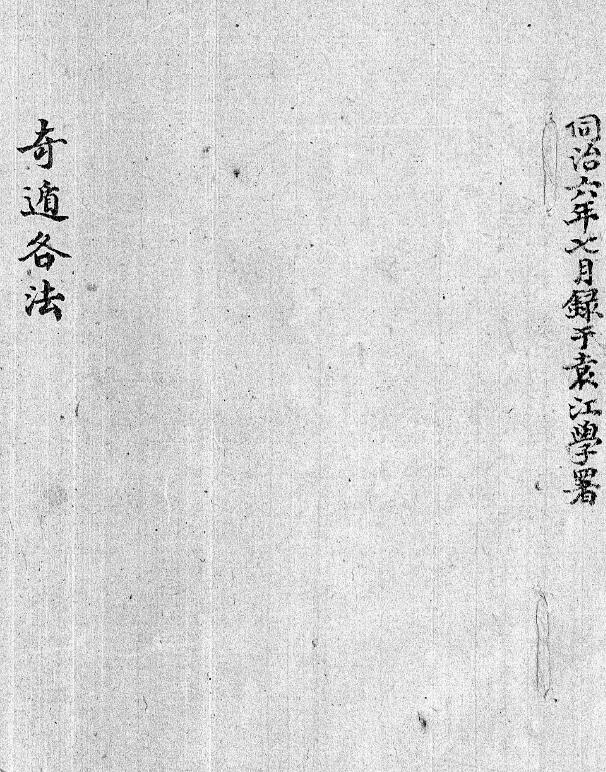 同治六年七月録于袁江學署
奇遁各法